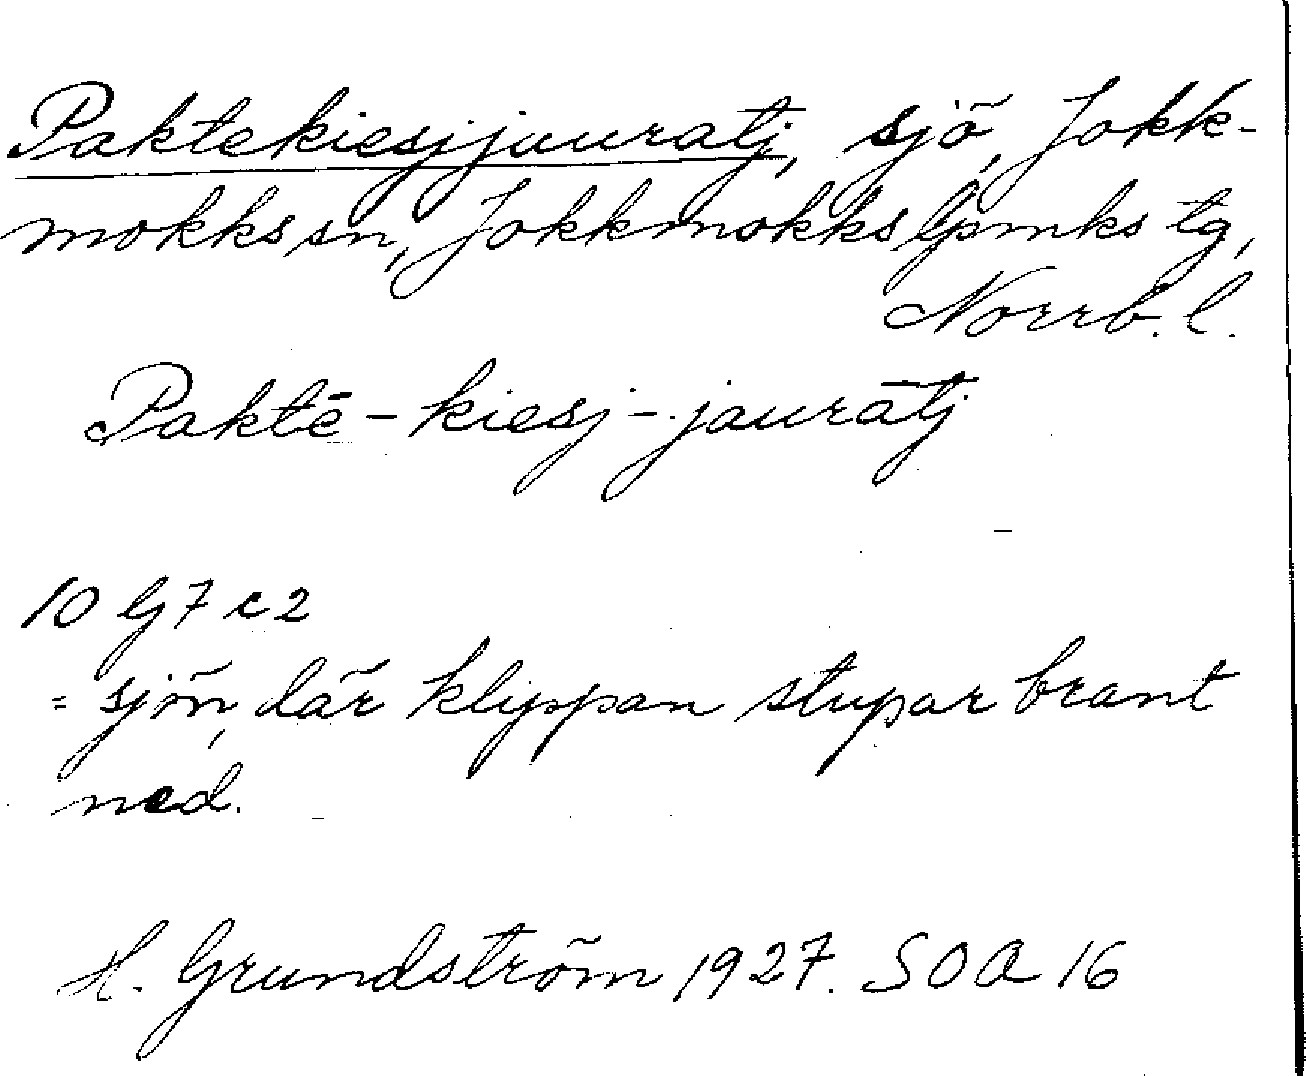 Paktekiesjjauratj, sjö, Jokk-
mokks sn, Jokkmokks lpmks tg,
Norrb. l.
Paktē - kiesj - jauràtj
10 G 7 c 2
= sjön, där klippan stupar brant
ned.
H. Grundström 1927. SOA 16